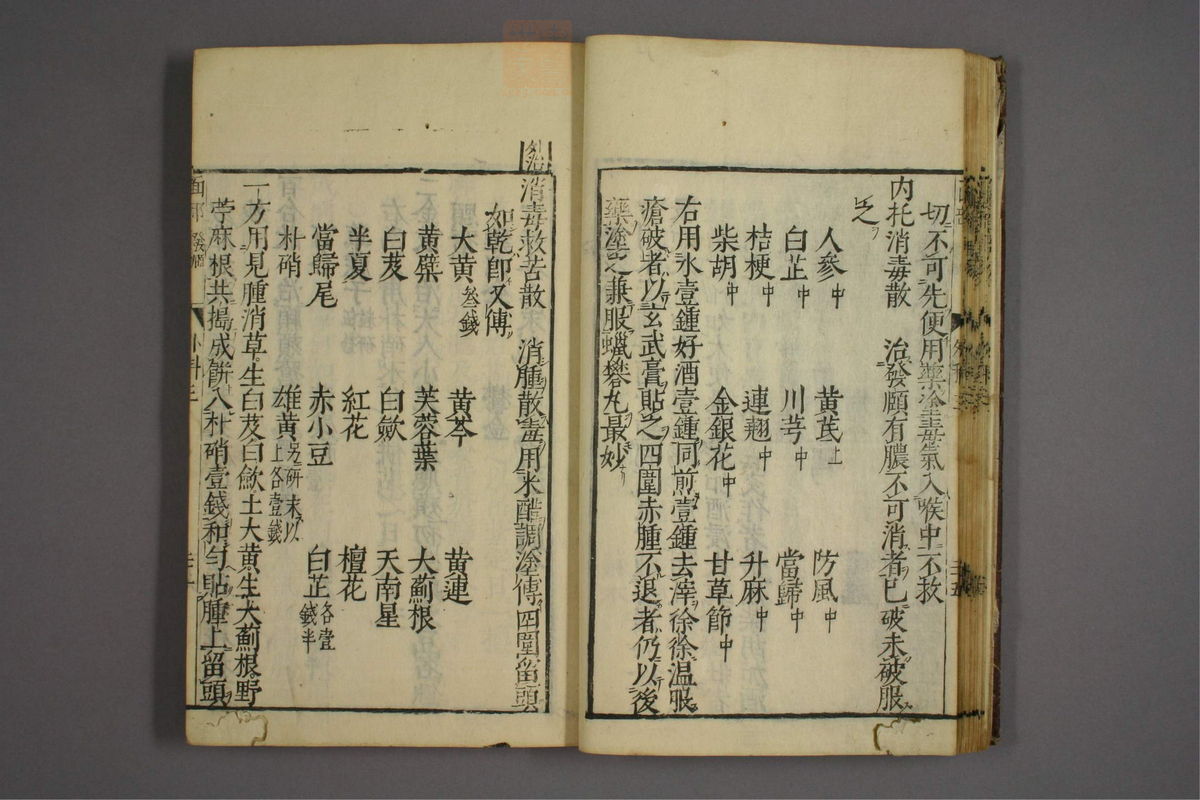 切不可先便用藥塗毒氣入喉中不救
内托消毒散 治發頤有膿不可消者已破未破服
之
人參中 黄茋上 防風中
白芷中 川芎中 當歸中
桔梗中 連翹中 升麻中
柴胡中 金銀花中 甘草節中
右用水壹鍾好酒壹鍾同煎壹鍾去滓徐徐温服
瘡破者以玄武膏貼之四圍赤腫不退者仍以後
藥塗之兼服蠟礬丸最妙
消毒救苦散 消腫散毒用米醋調塗傅四圍留頭
如乾即又傅
大黄叁錢 黄芩 黄連
黄蘗 芙蓉葉 大薊根
白芨 白歛 天南星
半夏 紅花 檀花
當歸尾 赤小豆 白芷各壹錢半
朴硝 雄黄另研末以上各壹錢
一方用見腫消草生白芨白歛土大黄生大薊根野
苧麻根共搗成餅入朴硝壹錢和勻貼腫上留頭
面部 發頤 外科三